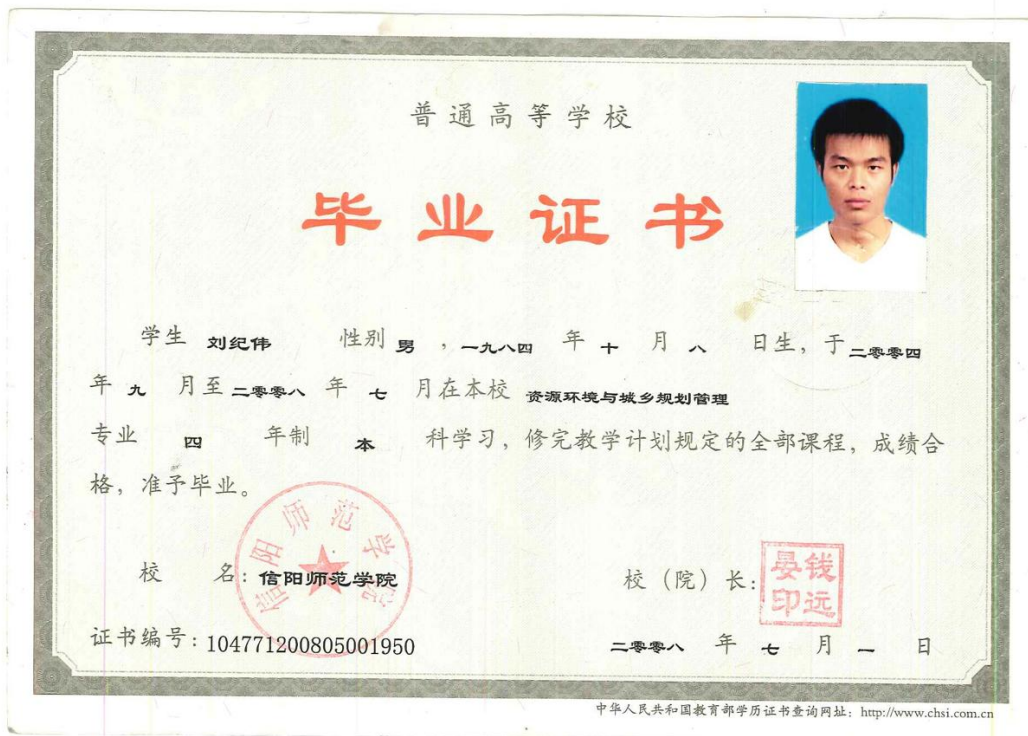 普通高等学校
毕业证书
学生 刘纪伟 性别 男 ，一九八四 年 十 月 八 日生，于 二零零四
年 九 月至 二零零八 年 七 月在本校 资源环境与城乡规划管理
专业 四 年制 本 科学习，修完教学计划规定的全部课程，成绩合
格，准予毕业。
信阳师范学院
校 名：信阳师范学院
校（院）长：
钱远晏印
证书编号：104771200805001950
二零零八 年 七 月 一 日
中华人民共和国教育部学历证书查询网址：http://www.chsi.com.cn